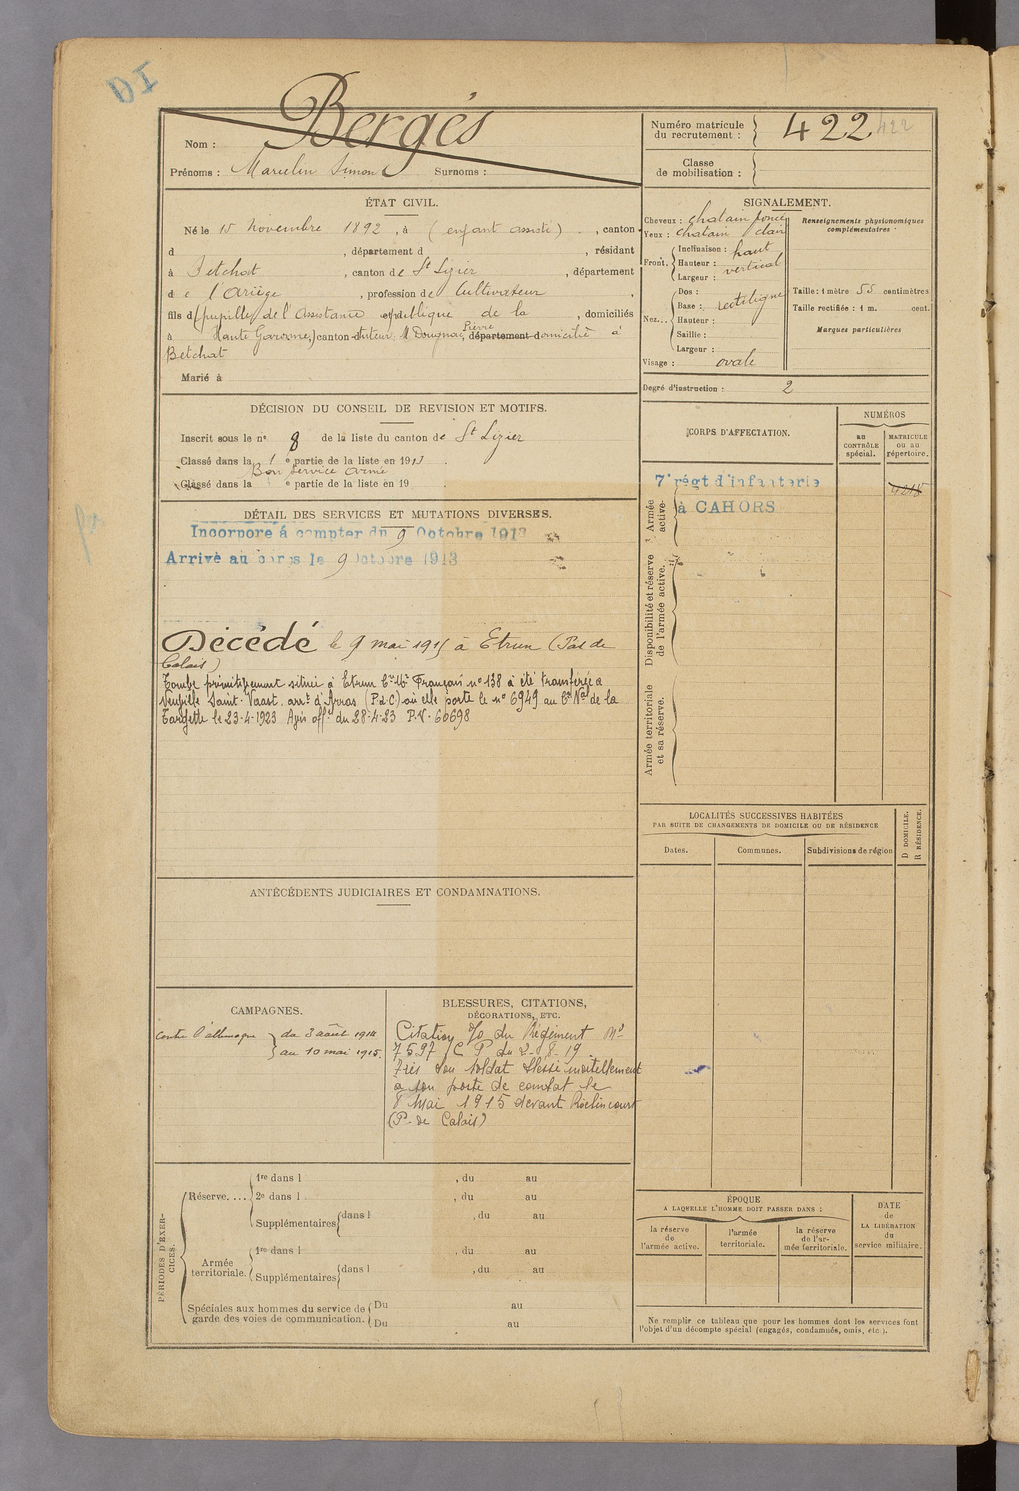 Bergès
Numéro matricule du recrutement : 422 422
Nom :
Prénoms : Marcelin Simon Surnoms :
Classe de mobilisation :
ÉTAT CIVIL.
Né le 15 Novembre 1892, à (enfant assisté), canton
d , département d , résidant
à Betchat, canton de St Lizier, département
de l'Ariège, profession de Cultivateur,
fils d (pupille de l'Assistance publique de la , domiciliés
à Haute Garonne) canton tuteur: M Dougnac Pierre, département domicilié à
Betchat
Marié à
SIGNALEMENT.
Cheveux : chatain foncé
Yeux : chatain clair
Front. Inclinaison : haut
Hauteur : vertical
Largeur :
Nez... Dos :
Base : rectiligne
Hauteur :
Saillie :
Largeur :
Visage : ovale
Renseignements physionomiques complémentaires :
Taille : 1 mètre 55 centimètres
Taille rectifiée : 1 m. cent.
Marques particulières
Degré d'instruction : 2
DÉCISION DU CONSEIL DE REVISION ET MOTIFS.
Inscrit sous le n° 8 de la liste du canton de St Lizier
Classé dans la 1e partie de la liste en 1913.
Bon Service Armé
Classé dans la e partie de la liste en 19
DÉTAIL DES SERVICES ET MUTATIONS DIVERSES.
Incorporé à compter du 9 Octobre 1913
Arrivé au corps le 9 Octobre 1913
Décédé le 9 mai 1915 à Etrun (Pas de
Calais)
Tombe primitivement située à Etrun Cre Mre Français n° 138 a été transférée à
Neuville Saint-Vaast, arrt d'Arras (P.d.C) où elle porte le n° 6949 au Cre Nal de la
Targette le 23-4-1923 Avis offl du 28-4-23 P.V. 60698
CORPS D'AFFECTATION.
NUMÉROS
au CONTRÔLE spécial.
MATRICULE ou au répertoire.
Armée active.
7e régt d'infanterie
à CAHORS
Disponibilité et réserve de l'armée active.
Armée territoriale et sa réserve.
LOCALITÉS SUCCESSIVES HABITÉES
PAR SUITE DE CHANGEMENTS DE DOMICILE OU DE RÉSIDENCE
Dates.
Communes.
Subdivisions de région
D DOMICILE.
R RÉSIDENCE.
ANTÉCÉDENTS JUDICIAIRES ET CONDAMNATIONS.
CAMPAGNES.
Contre l'allemagne du 3 août 1914
au 10 mai 1915.
BLESSURES, CITATIONS,
DÉCORATIONS, ETC.
Citation /o du Régiment No
7597 C P du 2-8-19
Très bon soldat blessé mortellement
à son poste de combat le
8 Mai 1915 devant Roclincourt
(P. de Calais)
PÉRIODES D'EXERCICES.
Réserve.... 1re dans l , du au
2e dans l , du au
Supplémentaires dans l , du au
Armée territoriale. 1re dans l , du au
Supplémentaires dans l , du au
Spéciales aux hommes du service de garde des voies de communication. Du au
Du au
ÉPOQUE
A LAQUELLE L'HOMME DOIT PASSER DANS :
la réserve de l'armée active.
l'armée territoriale.
la réserve de l'armée territoriale.
DATE de LA LIBÉRATION du service militaire.
Ne remplir ce tableau que pour les hommes dont les services font
l'objet d'un décompte spécial (engagés, condamnés, omis, etc.).